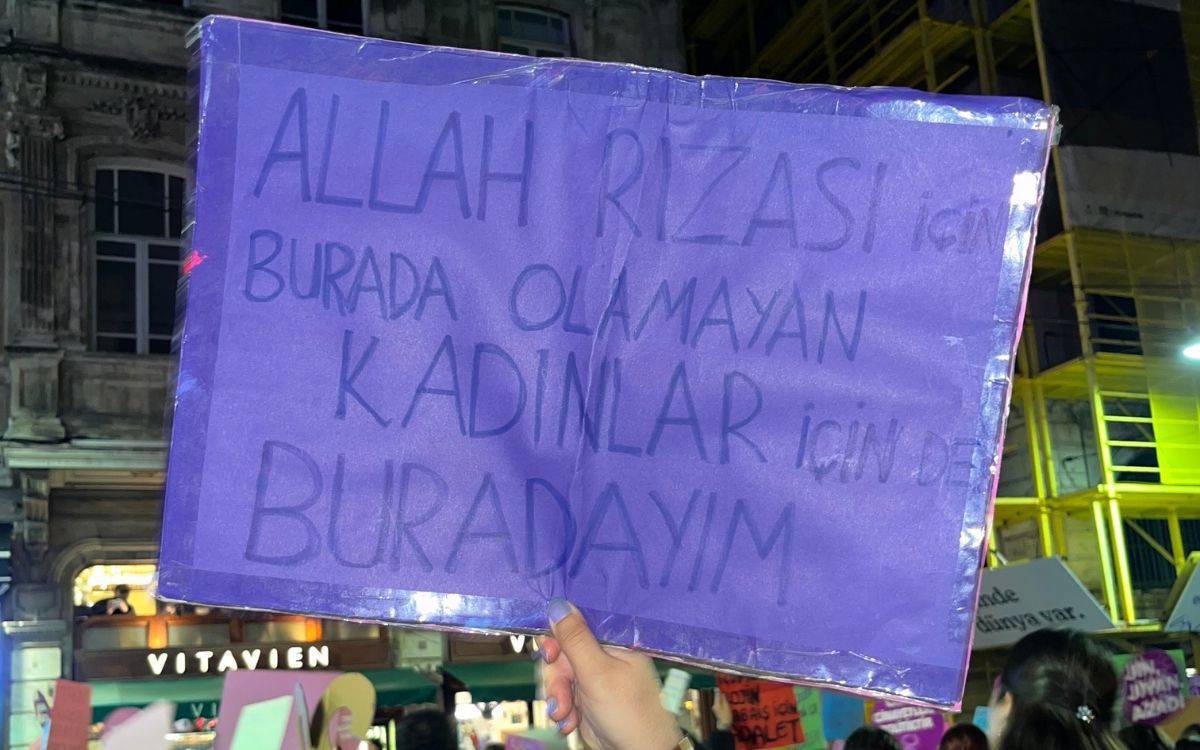 ALLAH RIZASI İÇİN
BURADA OLAMAYAN
KADINLAR İÇİN DE
BURADAYIM
VITAVIEN
V
dünya var.
JİN
JIYAN
AZADÎ